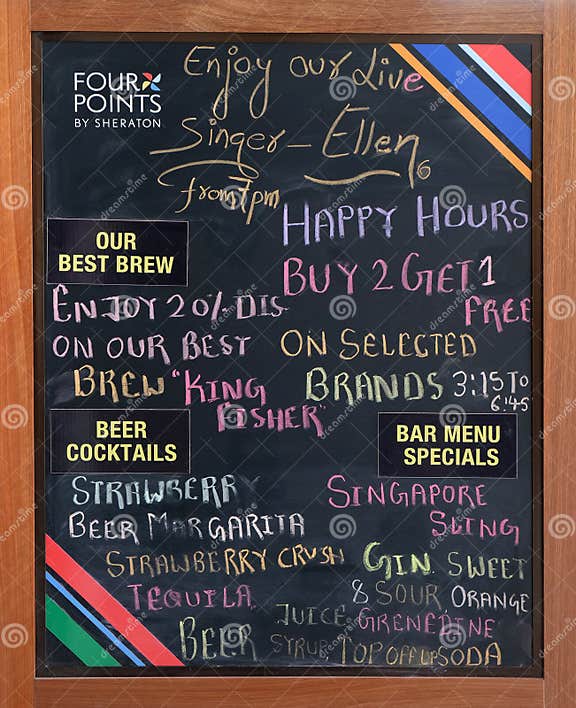 FOUR
POINTS
BY SHERATON
Enjoy our Live
Singer - Ellen
from 7pm
HAPPY HOURS
BUY 2 GET 1
FREE
ON SELECTED
BRANDS 3:15 TO
6:45
OUR
BEST BREW
ENJOY 20% DIS
ON OUR BEST
BREW "KING
FISHER"
BEER
COCKTAILS
STRAWBERRY
BEER MARGARITA
STRAWBERRY CRUSH
TEQUILA
BEER
BAR MENU
SPECIALS
SINGAPORE
SLING
GIN. SWEET
& SOUR, ORANGE
JUICE, GRENEDINE
SYRUP, TOP OFF UP SODA